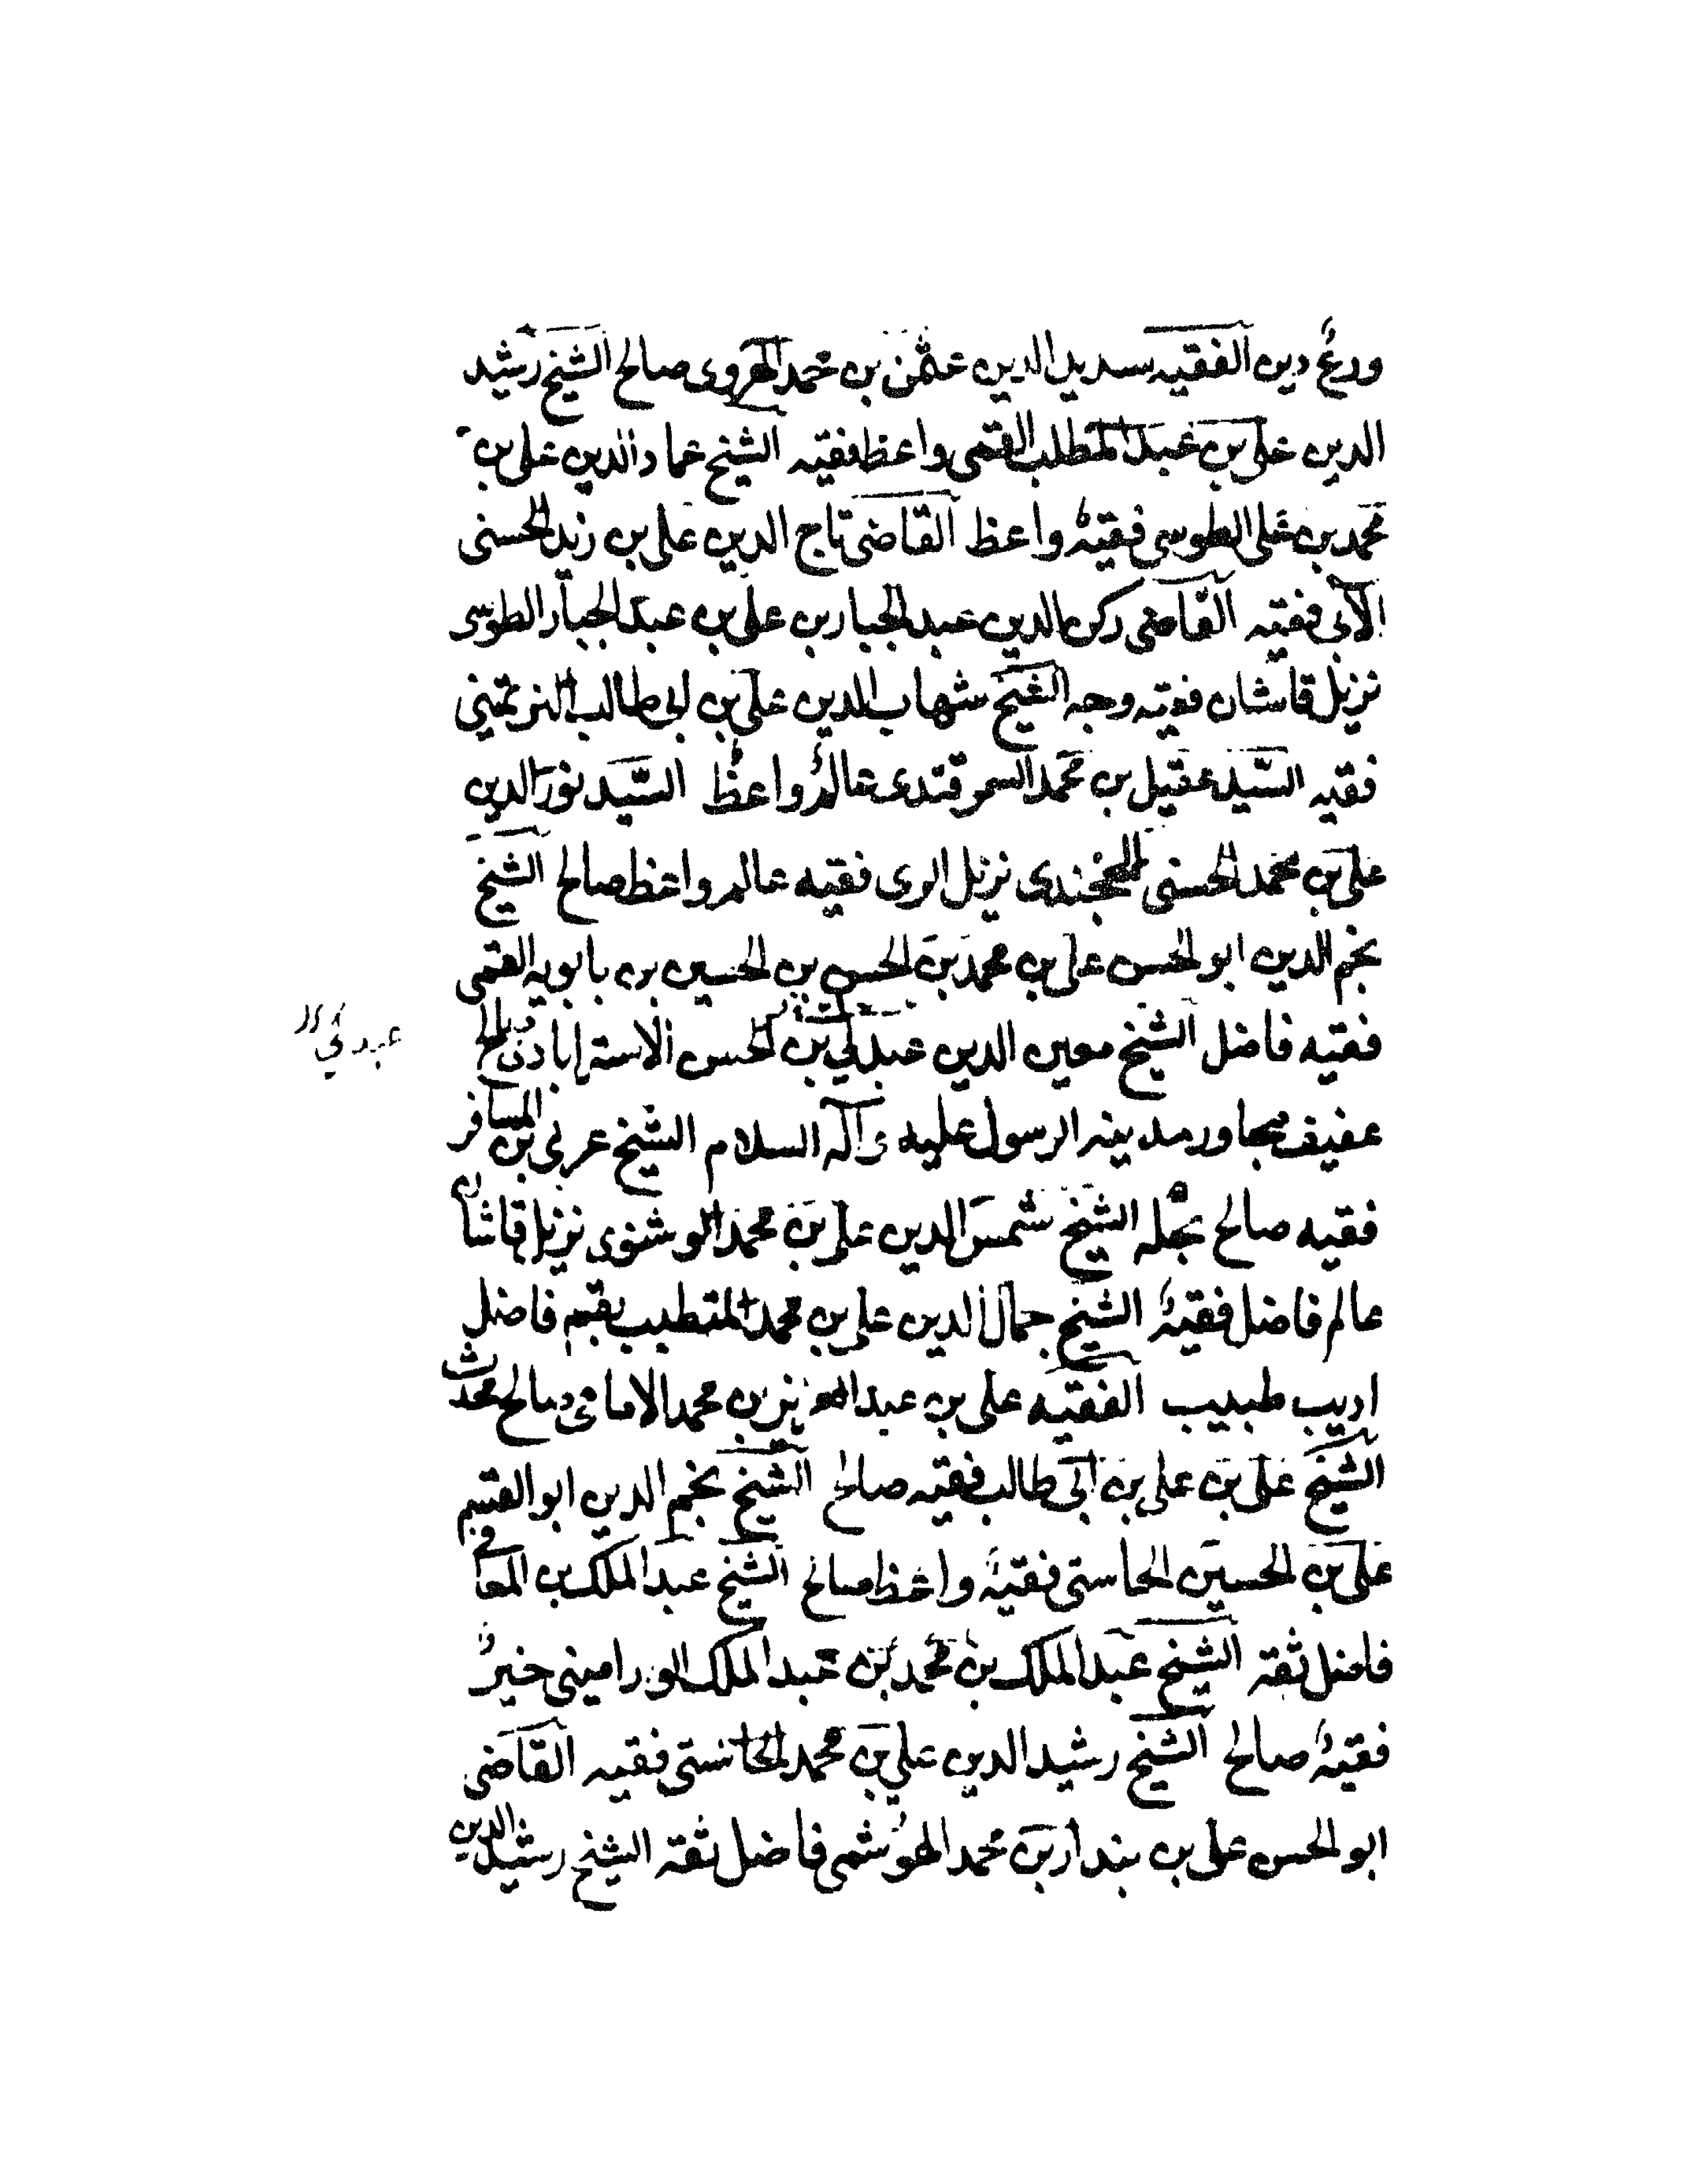 ورع دين الفقيه سديد الدين عثمن بن محمد الهروى صالح الشيخ رشيد
الدين على بن عبد المطلب القمى واعظ فقيه الشيخ عماد الدين على بن
محمد بن على الطوسى فقيه واعظ القاضى تاج الدين على بن زيد الحسنى
الآبى فقيه القاضى ركن الدين عبد الجبار بن على بن عبد الجبار الطوسى
نزيل قاشان فقيه وجه الشيخ شهاب الدين على بن ابى طالب
فقيه السيد عقيل بن محمد السمرقندى عالم واعظ السيد نور الدين
على بن محمد الحسنى الخجندى نزيل الرى فقيه عالم واعظ صالح الشيخ
نجم الدين ابو الحسن على بن محمد بن الحسن بن الحسين بن بابويه القمى
فقيه فاضل الشيخ معين الدين بن الحسن الاسترابادى صالح
عفيف مجاور مدينه الرسول عليه وآله السلام الشيخ عربى بن المسافر
فقيه صالح بحله الشيخ شمس الدين على بن محمد الوشنوى نزيل قاشان
عالم فاضل فقيه الشيخ جمال الدين على بن محمد المتطبب بقم فاضل
اديب طبيب الفقيه على بن عبد العزيز بن محمد الامامى صالح محدث
الشيخ على بن على بن ابى طالب فقيه صالح الشيخ نجم الدين ابو القسم
على بن الحسين الحاستى فقيه واعظ صالح الشيخ عبد الملك بن المعافى
فاضل ثقة الشيخ عبد الملك بن محمد بن عبد الملك الورامينى خير
فقيه صالح الشيخ رشيد الدين على بن محمد الحاستى فقيه القاضى
ابو الحسن على بن بندار بن محمد الهوشمى فاضل ثقة الشيخ رشيد الدين